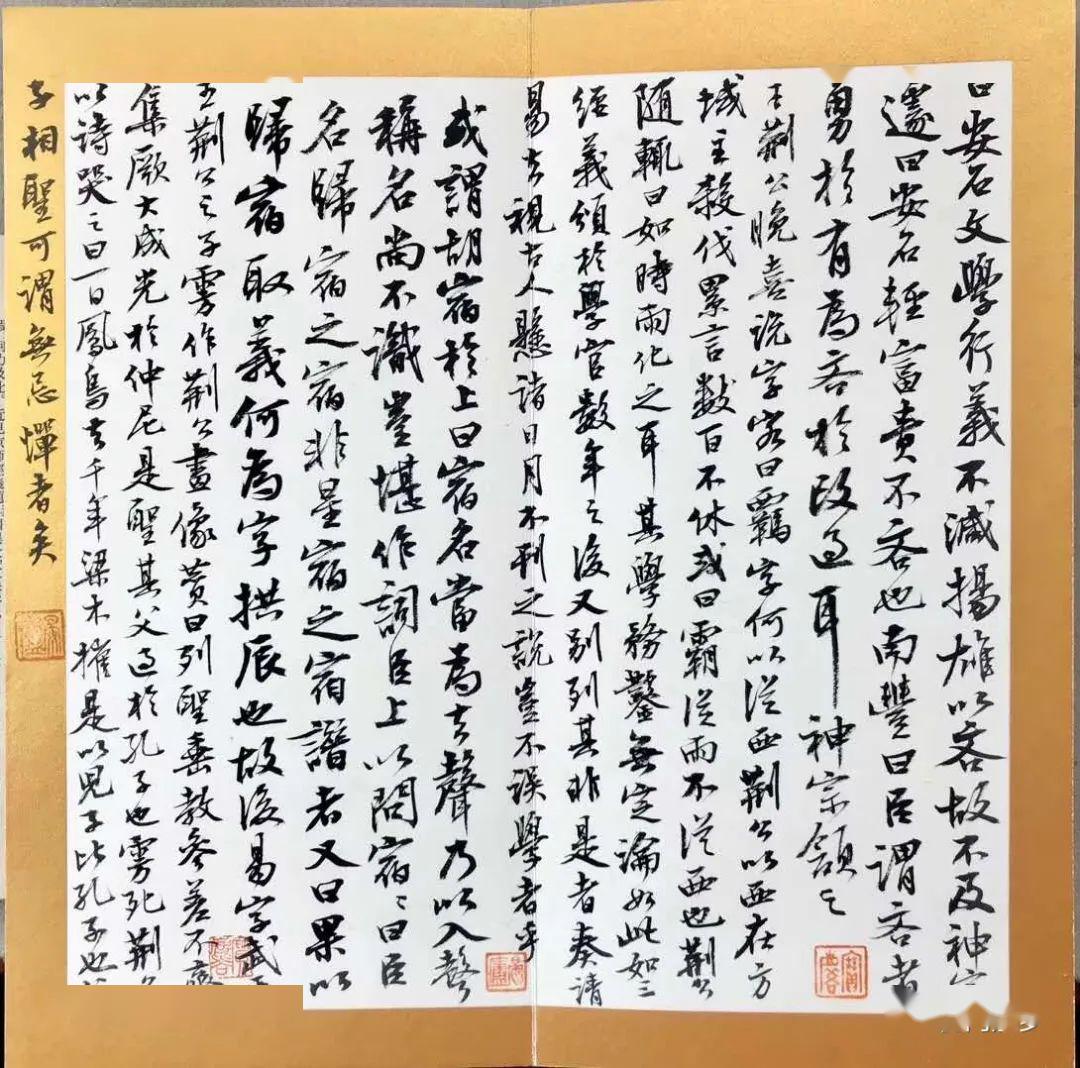 曰安石文學行義不減揚雄以吝故不及神宗
遽曰安石輕富貴不吝也南豐曰臣謂吝者
勇於有為吝於改過耳神宗頷之
王荆公晚喜說字客曰霸字何以從西荆公以西在方
域主殺伐累言數百不休或曰霸從雨不從西也荆公
隨輒曰如時雨化之耳其學務鑿無定論如此如三
經義頒於學官數年之後又別列其非是者奏請
易去視古人懸諸日月不刊之說豈不誤學者乎
或謂胡宿於上曰宿名當為去聲乃以入聲
稱名尚不識豈堪作詞臣上以問宿宿曰臣
名歸宿之宿非星宿之宿譖者又曰果以
歸宿取義何為字拱辰也故後易字武
王荆公之子雱作荆公畫像贊曰列聖垂教參差不齊
集厥大成光於仲尼是聖其父過於孔子也雱死荆公
以詩哭之曰一日鳳鳥去千年梁木摧是以兒子比孔子也
子相聖可謂無忌憚者矣